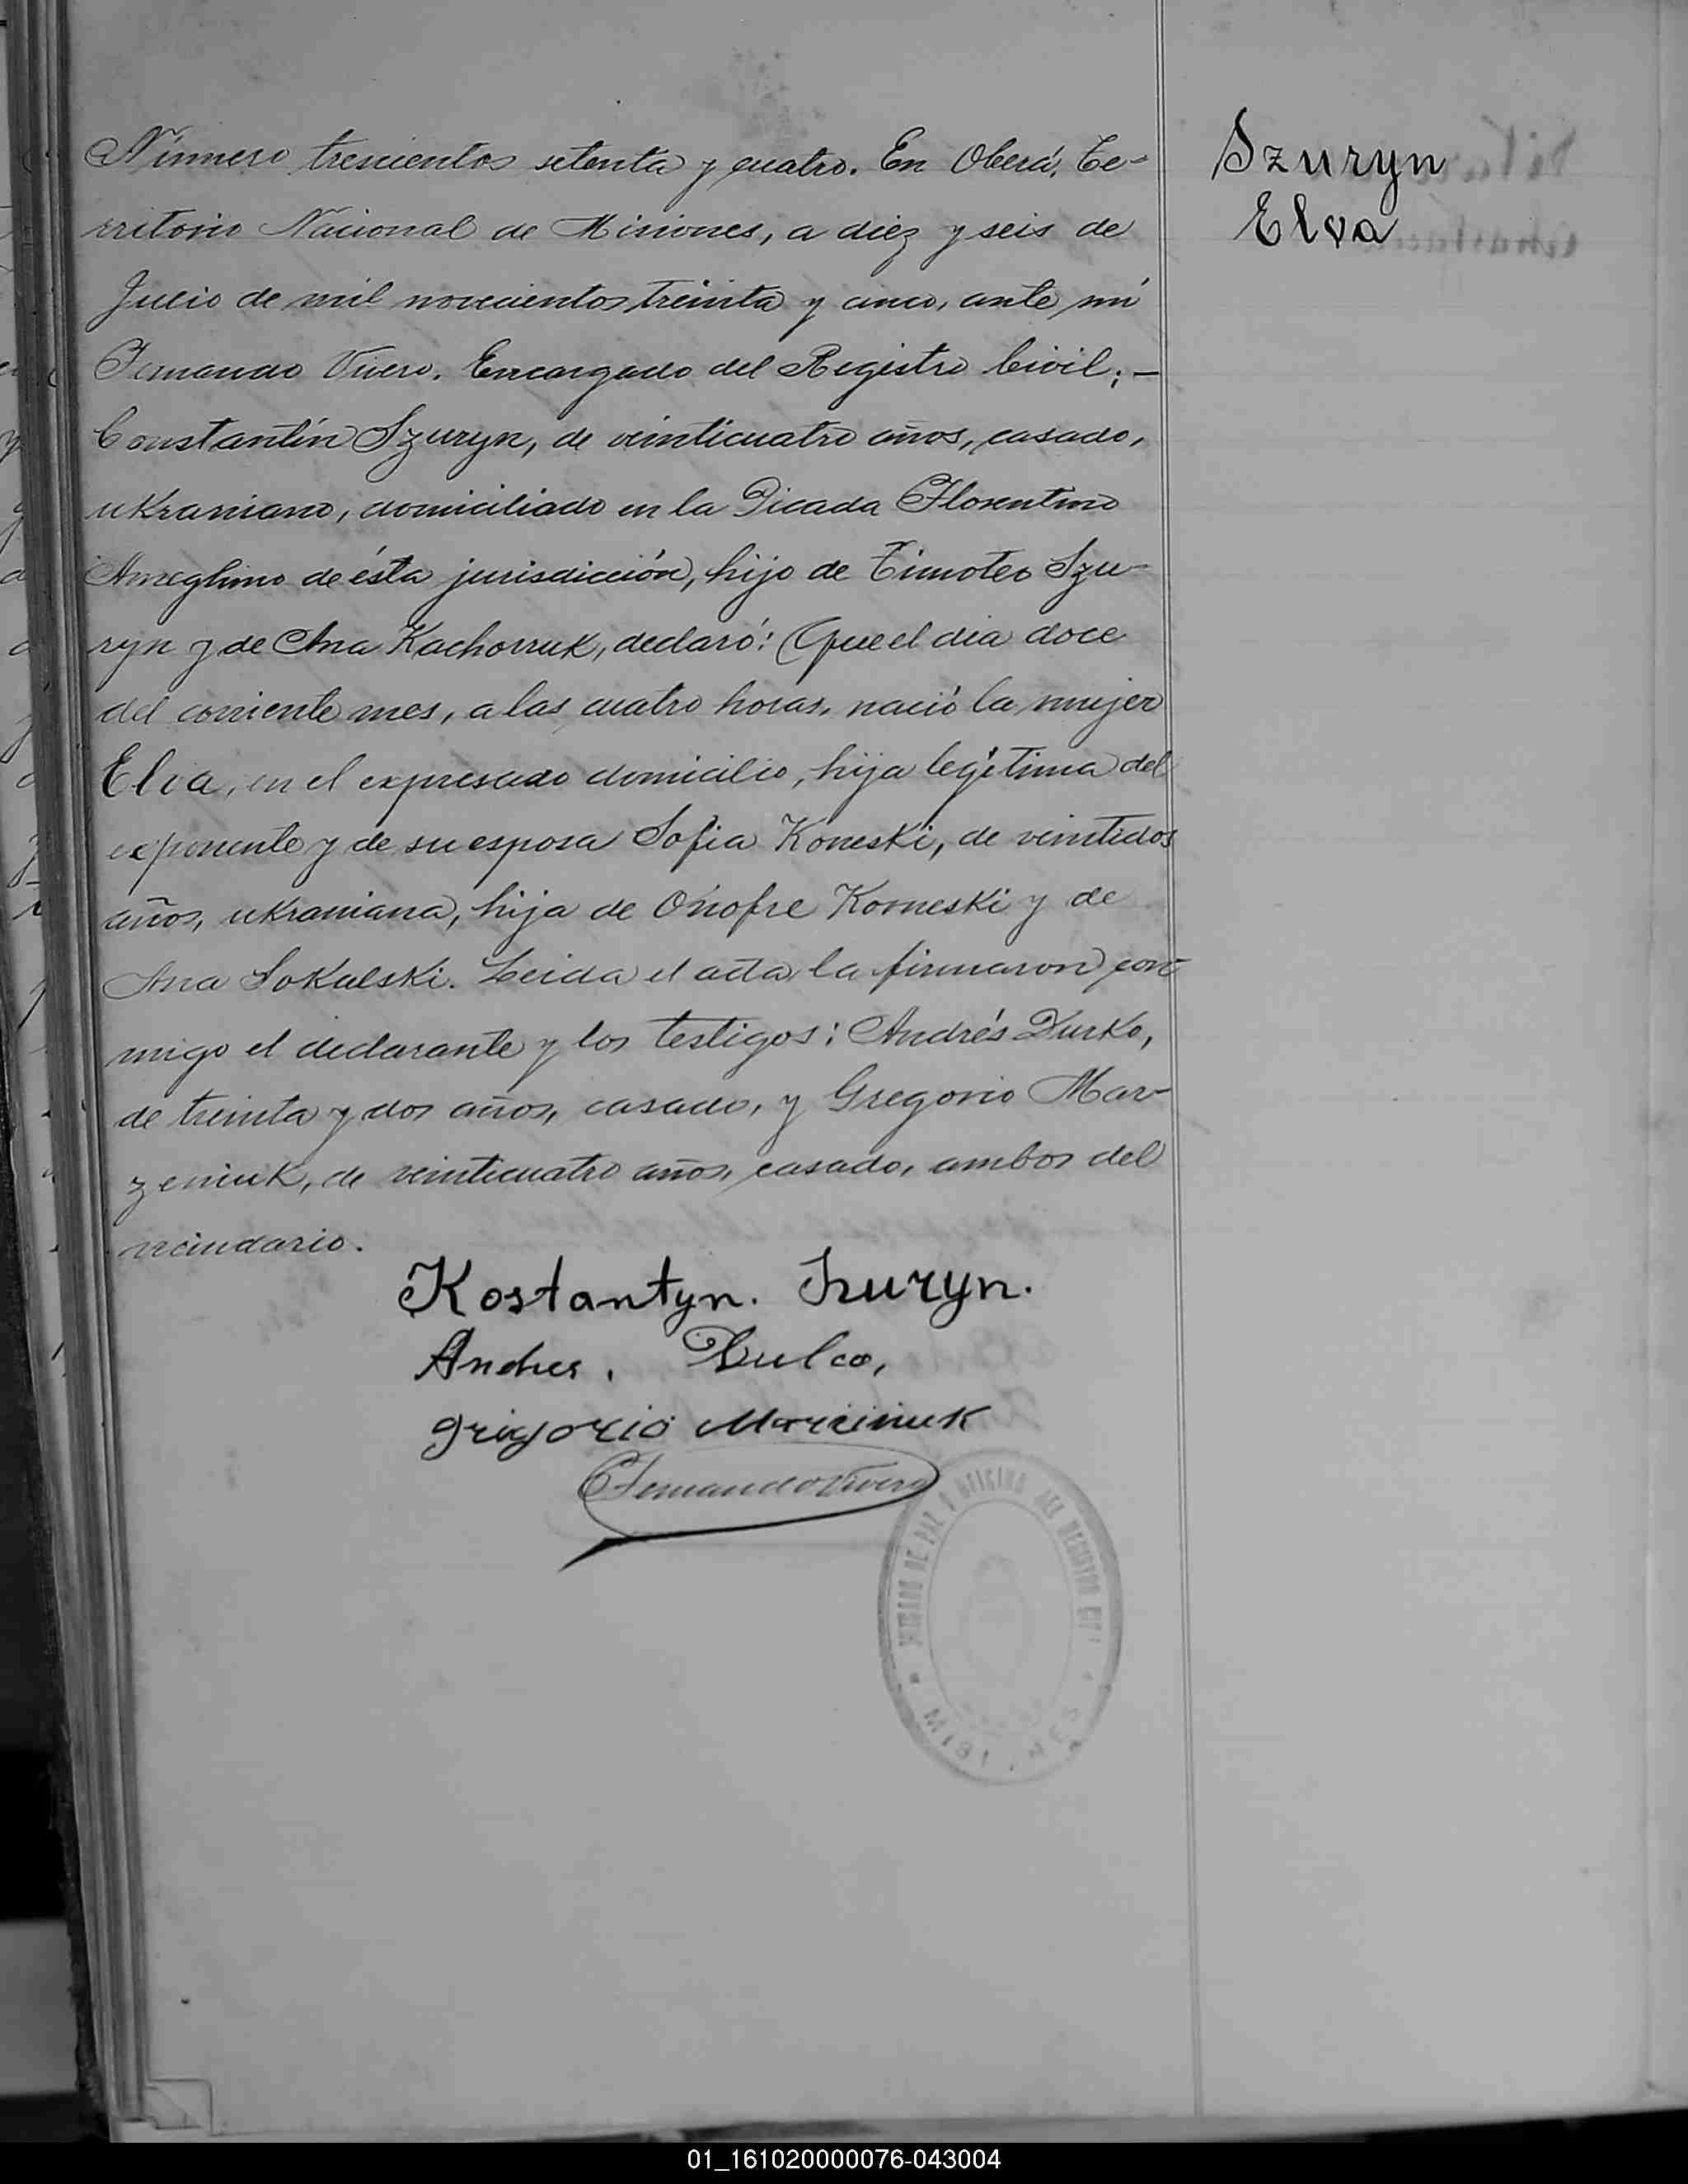 Número trescientos setenta y cuatro. En Oberá, Te-
rritorio Nacional de Misiones, a diez y seis de
Julio de mil novecientos treinta y cinco, ante mí
Fernando Vivero, Encargado del Registro Civil; -
Constantín Szuryn, de veinticuatro años, casado,
ukraniano, domiciliado en la Picada Florentino
Ameghino de ésta jurisdicción, hijo de Timoteo Szu-
ryn y de Ana Kachorruk, declaró: Que el dia doce
del corriente mes, a las cuatro horas, nació la mujer
Elva, en el expresado domicilio, hija legítima del
exponente y de su esposa Sofia Koneski, de veintidos
años, ukraniana, hija de Onofre Korneski y de
Ana Sokalski. Leida el acta, la firmaron con-
migo el declarante y los testigos: Andrés Durko,
de treinta y dos años, casado, y Gregorio Mar-
zeniuk, de veinticuatro años, casado, ambos del
vecindario.
Kostantyn. Szuryn.
Andres. Dulco,
Grigorio Marciniuk
Fernando Vivero
JUZGADO DE PAZ Y OFICINA DEL REGISTRO CIVIL
MISIONES
Szuryn
Elva
01_161020000076-043004